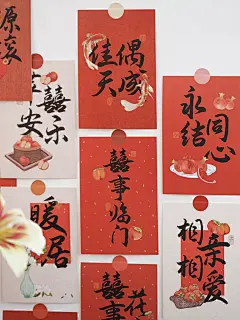 佳偶
天成
永结
同心
囍乐
安
囍事临门
暖居
相亲
相爱
囍事
花